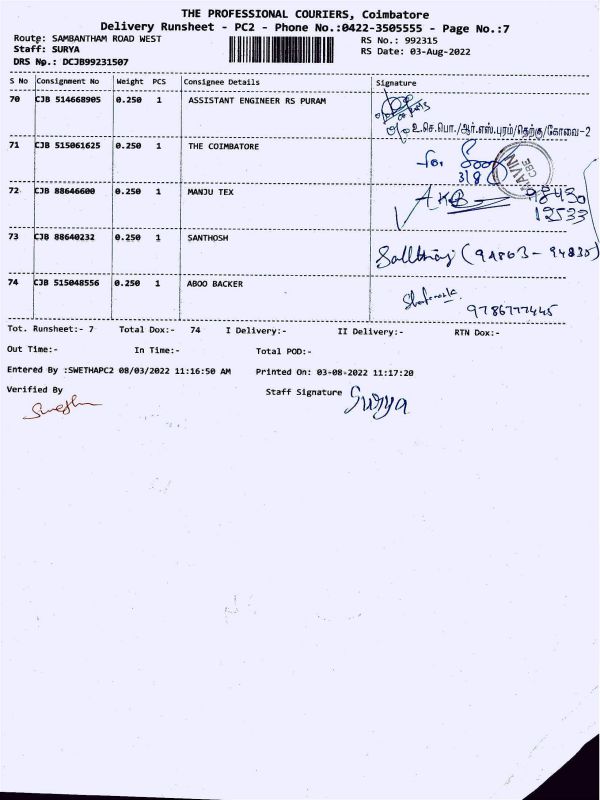 THE PROFESSIONAL COURIERS, Coimbatore
Delivery Runsheet - PC2 - Phone No.:0422-3505555 - Page No.:7
Route: SAMBANTHAM ROAD WEST
RS No.: 992315
Staff: SURYA
RS Date: 03-Aug-2022
DRS No.: DCJB99231507
S No Consignment No Weight PCS Consignee Details Signature
70 CJB 514668905 0.250 1 ASSISTANT ENGINEER RS PURAM
உ.செ.பொ./ஆர்.எஸ்.புரம்/தெற்கு/கோவை-2
71 CJB 515061625 0.250 1 THE COIMBATORE
for
3/8
AAVIN CBE
72 CJB 88646600 0.250 1 MANJU TEX
98430
12533
73 CJB 88640232 0.250 1 SANTHOSH
(94863 - 94835)
74 CJB 515048556 0.250 1 ABOO BACKER
9786777445
Tot. Runsheet:- 7 Total Dox:- 74 I Delivery:- II Delivery:- RTN Dox:-
Out Time:- In Time:- Total POD:-
Entered By :SWETHAPC2 08/03/2022 11:16:50 AM Printed On: 03-08-2022 11:17:20
Verified By Staff Signature Surya